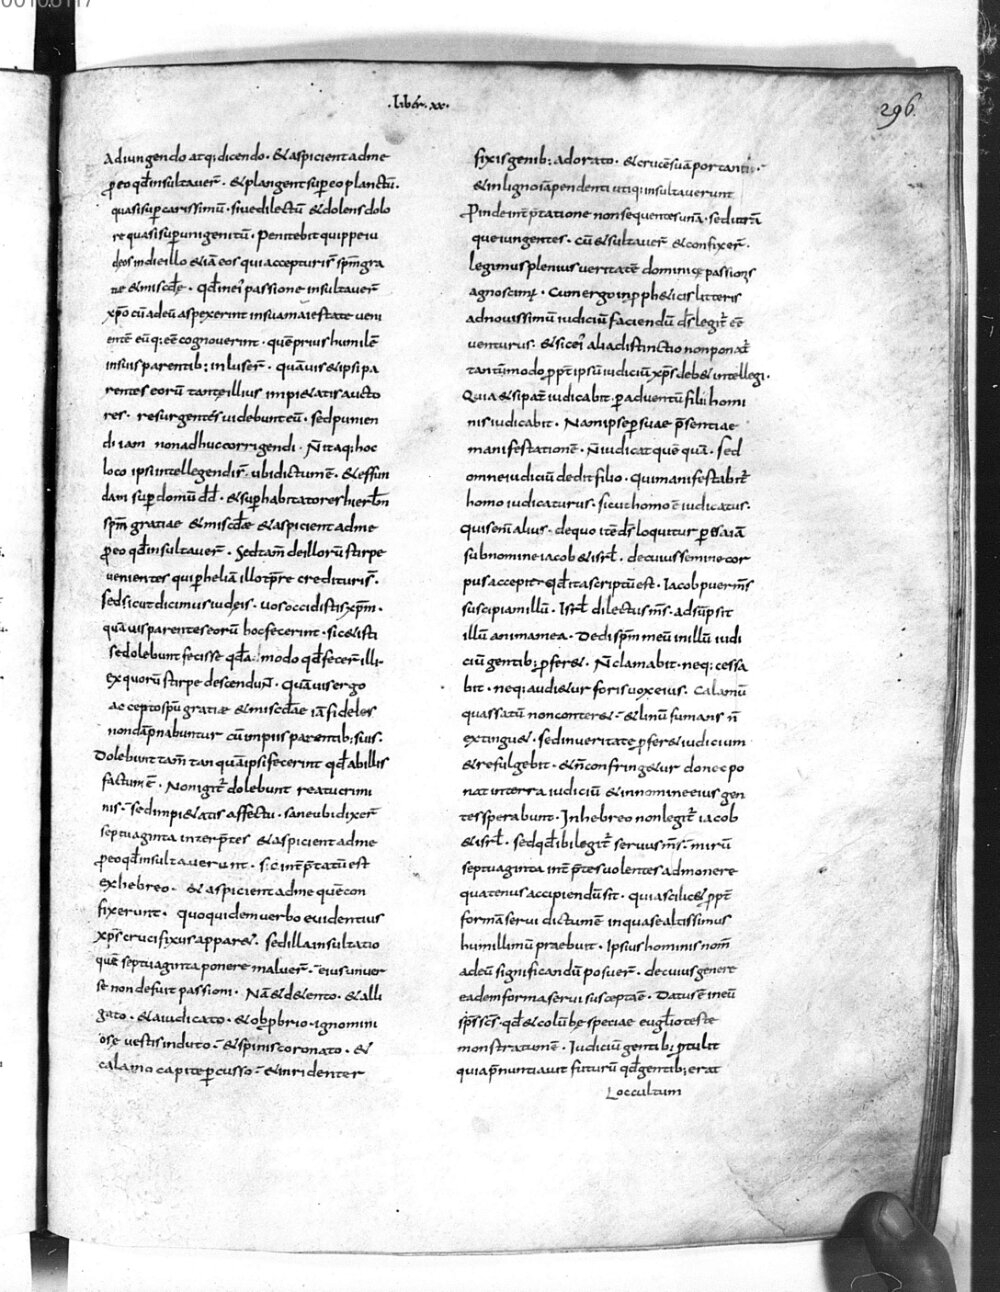 .liber.xx.
296
Adiungendo atq; dicendo. & aspicient adme
ꝓeo qđ insultauer̄. & plangent suꝑeo planctū.
quasi suꝑ carissimū. siue dilectū & dolens dolo
re quasi suꝑ unigenitū. Penitebit quippe iu
deos indie illo & iā eos qui accepturi s̄ spm̄ gra
tiae & miscđe. qđ inei' passione insultauer̄
xp̄o cū adeū aspexerint insua maiestate ueni
entē eūq; eē cognouerint. quē prius humilē
insuis parentib; inluser̄. quāuis & ipsi pa
rentes eorū tantę illius impi&atis aucto
res. resurgentes uidebunt eū. sed punien
di iam non adhuc corrigendi. N̄ itaq; hoc
loco ipsi intellegendi s̄. ubi dictum ē. & effun
dam suꝑ domū dđ. & suꝑ habitatores hierłm
spm̄ gratiae & miscđae & aspicient adme
ꝓeo qđ insultauer̄. Sed tam̄ de illorū stirpe
uenientes qui ꝑ heliā illo tp̄re credituri s̄.
sed sicut dicimus iudeis. uos occidistis xp̄m.
quāuis parentes eorū hoc fecerint. sic & isti
se dolebunt fecisse qđā modo qđ fecer̄ illi
ex quorū stirpe descendun̄t. Quāuis ergo
accepto spū gratiae & miscđae iā fideles
non dāpnabuntur cū impiis parentib; suis.
Dolebunt tam̄ tanquā ipsi fecerint qđ ab illis
factum ē. Non igit̄ dolebunt reatu crimi
nis. sed impi&atis affectu. sane ubi dixer̄
septuaginta interp̄tes & aspicient adme
ꝓeo qđ insultauerunt. sic int̄p̄tatū est
ex hebreo. & aspicient adme quē con
fixerunt. quo quidem uerbo euidentius
xp̄s crucifixus appar&. sed illa insultatio
quē septuaginta ponere maluer̄. eius uniuer
se non defuit passioni. Nā & d&ento. & alli
gato. & aiudicato. & obꝓbrio ignomini
osę uestis induto. & spinis coronato. &
calamo capite ꝑcusso. & inridenter
fixis genib; adorato. & crucē suā portanti.
& inligno iā pendenti utiq; insultauerunt
Proinde int̄p̄tatione non sequentes unā. sed utrā
que iungentes. cū & insultauer̄ & confixer̄.
legimus plenius ueritatē dominicę passionis
agnoscim;. Cum ergo in ꝓph&icis litteris
adnouissimū iudiciū faciendū ds̄ legit̄ eē
uenturus. & si eei' alia distinctio non ponat̄
tantūmodo ꝓpt̄ ipsū iudiciū xp̄s deb& intellegi.
Quia & si pat̄ iudicabit. ꝑ aduentū filii homi
nis iudicabit. Nam ipse ꝑ suae p̄sentiae
manifestationē. N̄ iudicat quē quā. sed
omne iudiciū dedit filio. Qui manifestabit̄
homo iudicaturus. sicut homo ē iudicatus.
Quis enī alius. de quo itē ds̄ loquitur ꝑ esaiā
sub nomine iacob & isrł. de cuius semine cor
pus accepit. qđ ita scriptū est. Iacob puer m̄s
suscipiam illū. Isrł dilectus m̄s. adsūpsit
illū anima mea. Dedi spm̄ meū in illū iudi
ciū gentib; ꝓfer&. N̄ clamabit. neq; cessa
bit. neq; audi&ur foris uox eius. Calamū
quassatū non conter&. & linū fumans n̄
extingu&. sed in ueritate ꝓfer& iudicium
& refulgebit. & n̄ confring&ur donec po
nat in terra iudiciū & in nomine eius gen
tes sperabunt. In hebreo non legit̄ iacob
& isrł. sed qđ ibi legit̄ seruus m̄s. mirū
septuaginta int̄p̄tes uolentes admonere
quatenus accipiendū sit. quia scilic& ꝓpt̄
formā serui dictum ē in qua se altissimus
humillimū praebuit. Ipsius hominis nom̄
adeū significandū posuer̄. de cuius genere
eadem forma serui susceptaē. Datus ē ineū
sp̄s sc̄s. qđ & colūbę speciae eugłio teste
monstratum ē. Iudiciū gentib; ꝓtulit
quia p̄nuntiauit futurū qđ gentib; erat
occultum